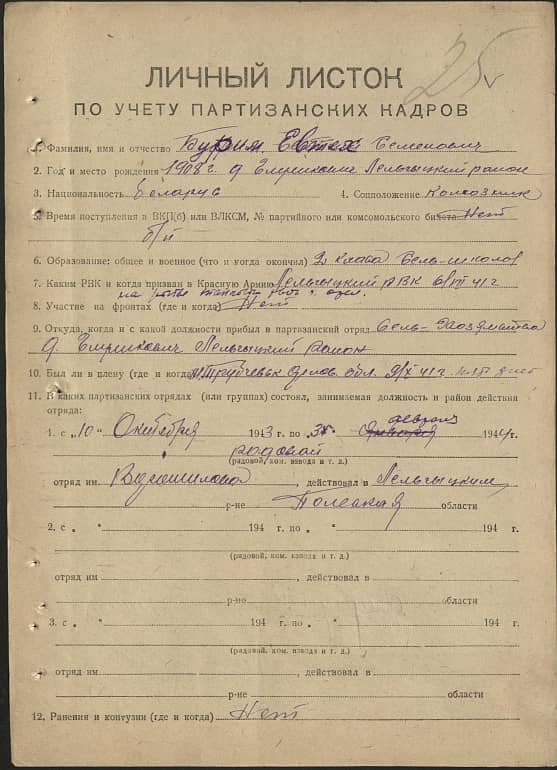 25
ЛИЧНЫЙ ЛИСТОК
ПО УЧЕТУ ПАРТИЗАНСКИХ КАДРОВ
1. Фамилия, имя и отчество Бурим Евтех Семенович
2. Год и место рождения 1908 г. д. Лельчицкий район
3. Национальность Беларус 4. Соцположение Колхозник
5. Время поступления в ВКП(б) или ВЛКСМ, № партийного или комсомольского билета Нет
б/п
6. Образование: общее и военное (что и когда окончил) 2 класа Сель-школы
7. Каким РВК и когда призван в Красную Армию Лельчицкий РВК 41 г
8. Участие на фронтах (где и когда) Нет
9. Откуда, когда и с какой должности прибыл в партизанский отряд Сель-
д. Лельчицкий район
10. Был ли в плену (где и когда) обл. 41 г.
11. В каких партизанских отрядах (или группах) состоял, занимаемая должность и район действия
отряда:
февраля
1. с „10" Октября 1943 г. по 1944 г.
рядовой
(рядовой, ком. взвода и т. д.)
отряд им Ворошилова, действовал в Лельчицким
р-не Полеская области
2. с „ " 194 г. по „ " 194 г.
(рядовой, ком. взвода и т. д.)
отряд им , действовал в
р-но области
3. с „ " 194 г. по „ " 194 г.
(рядовой, ком. взвода и т. д.)
отряд им , действовал в
р-не области
12. Ранения и контузии (где и когда) Нет